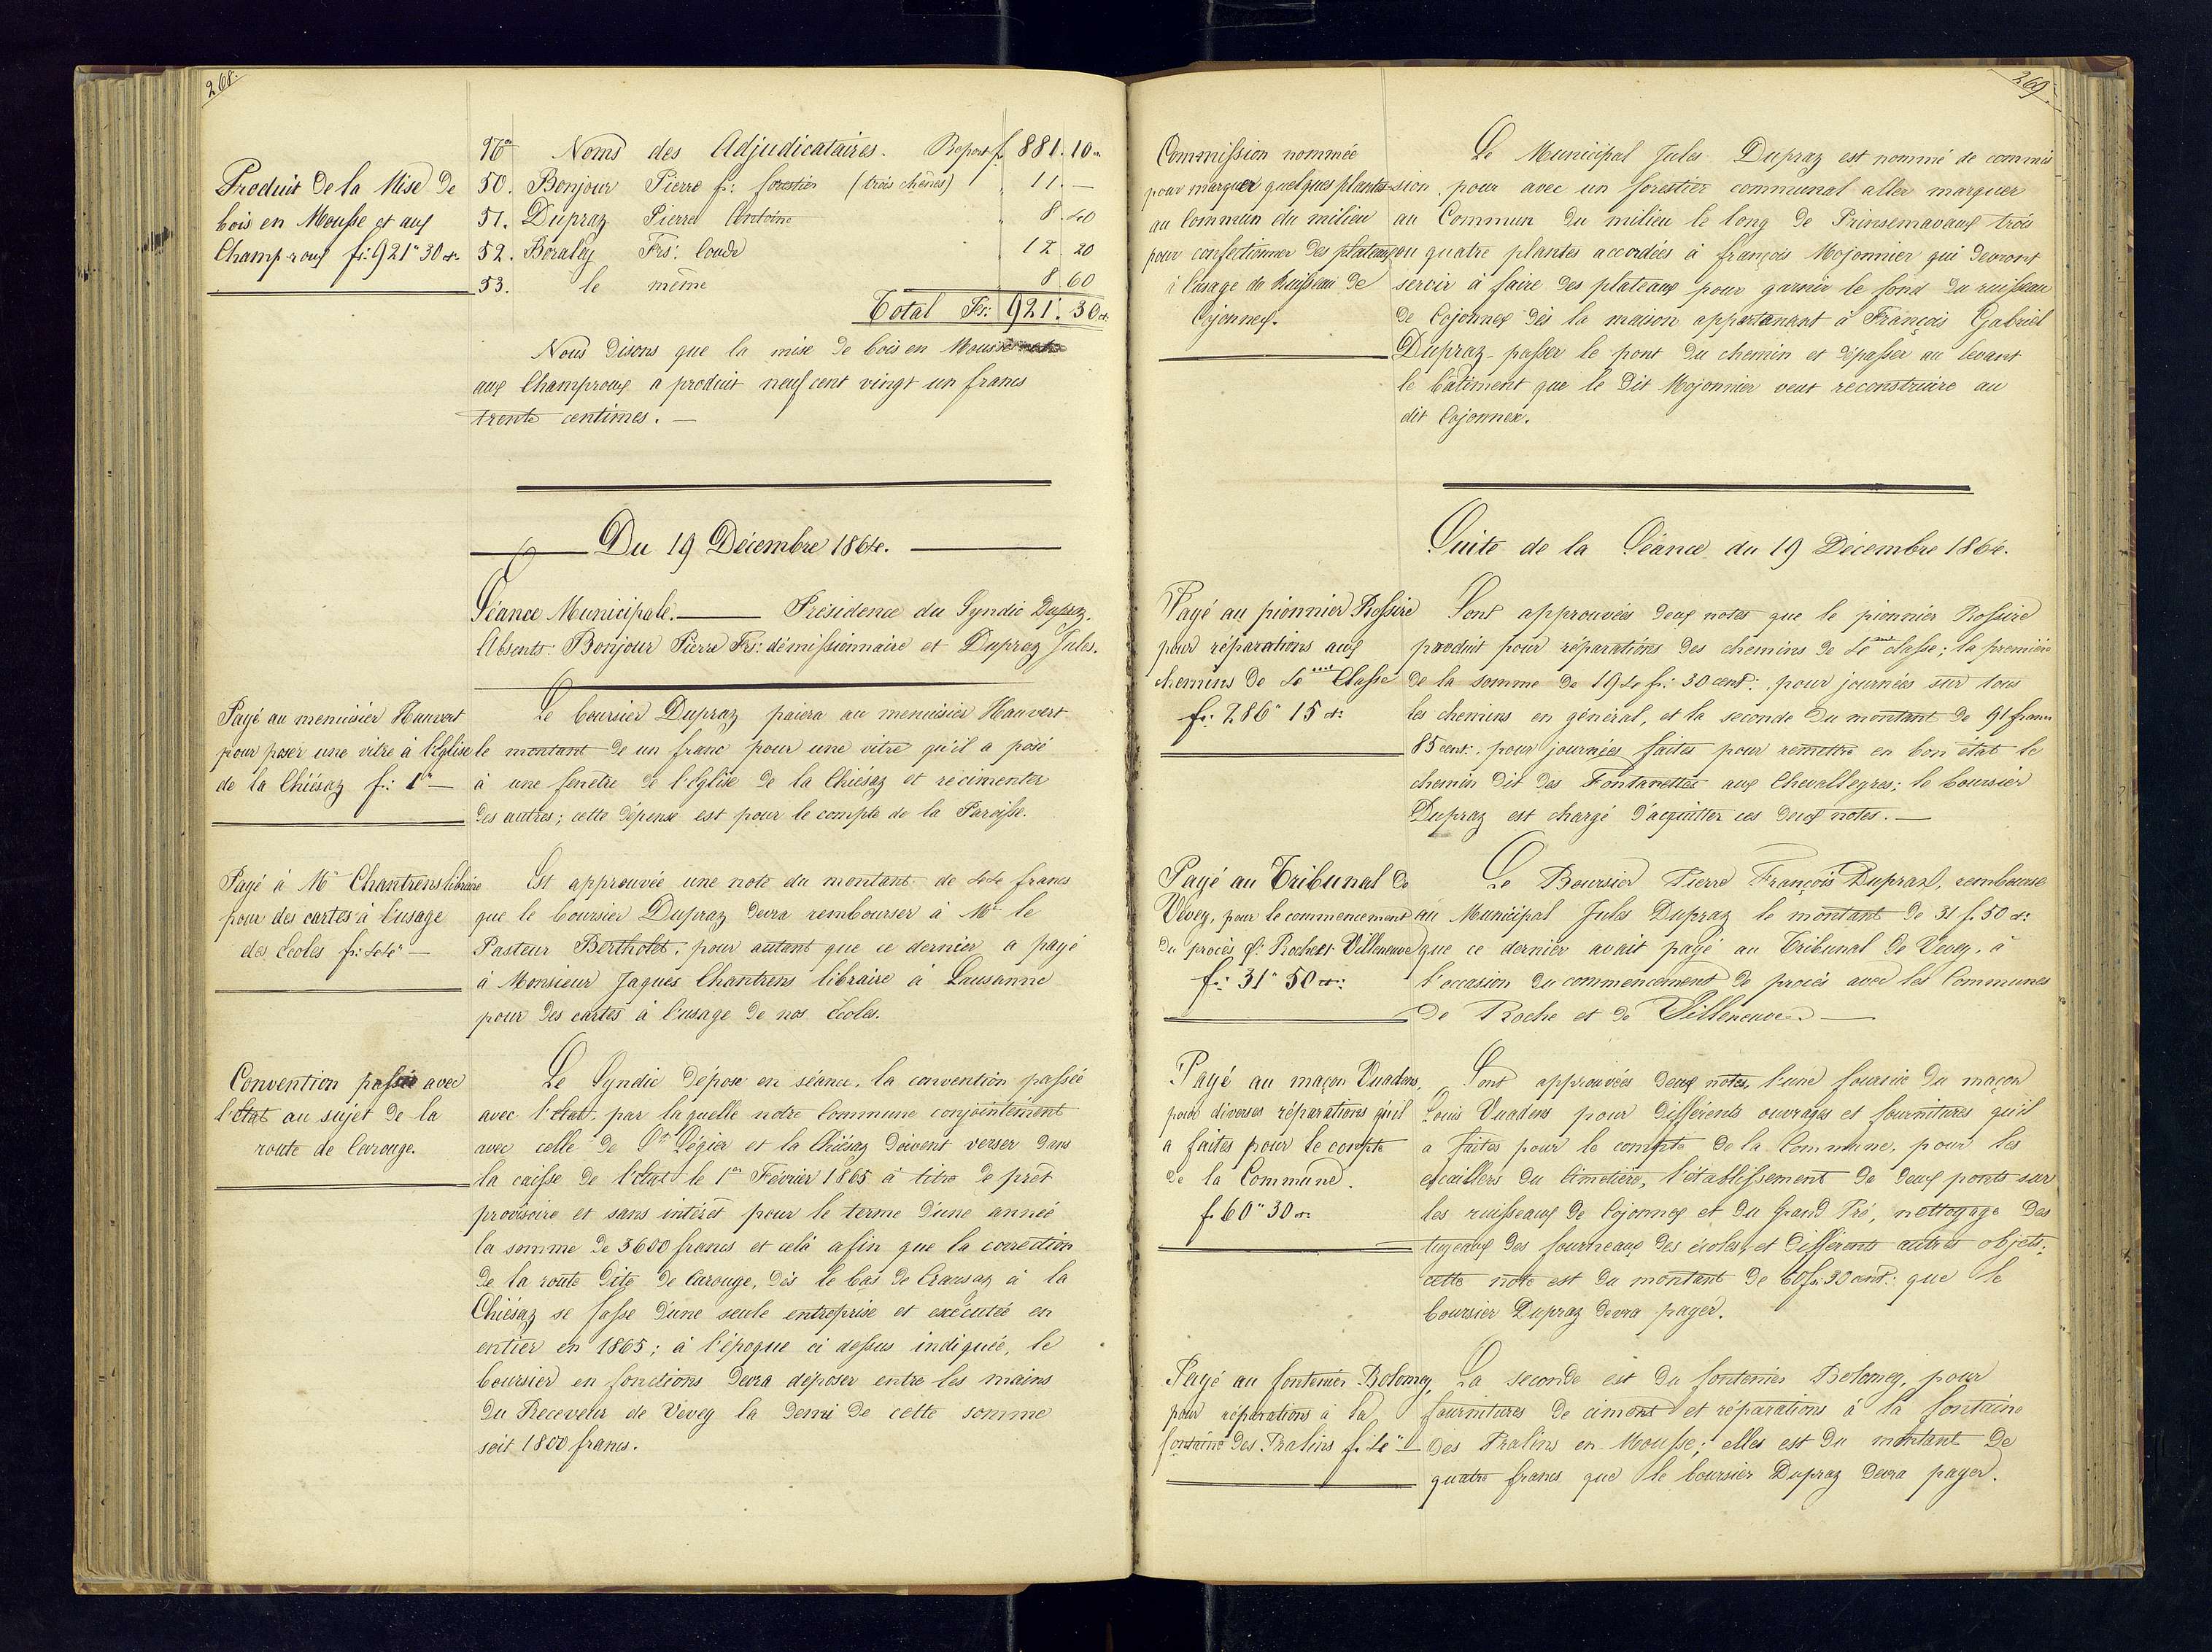 268.
Produit de la Mise de
bois en Mousse et aux
Champ-roux fr: 921" 30 ct.
No Noms des Adjudicataires. Report f. 881. 10 ct.
50. Bonjour Pierre f: forestier (trois chênes) " 11. —
51. Dupraz Pierre Antoine " 8. 40
52. Béraley Frs: Coude " 12. 20
53. le même 8 60
Total Frs: 921. 30 ct.
Nous disons que la mise de bois en Mousse
aux Champroux a produit neuf cent vingt un francs
trente centimes. —
Du 19 Décembre 1864.
Séance Municipale. — Présidence du Syndic Dupraz.
Absents: Bonjour Pierre Frs: démissionnaire et Dupraz Jules.
Payé au menuisier Hauvert
pour poser une vitre à l'Eglise
de la Chiésaz f: 1" —
Le boursier Dupraz paiera au menuisier Hauvert
le montant de un franc pour une vitre qu'il a posé
à une fenêtre de l'Eglise de la Chiésaz et recimenter
des autres; cette dépense est pour le compte de la Paroisse.
Payé à Mr Chantrens libraire
pour des cartes à l'usage
des écoles fr: 44" —
Est approuvée une note du montant de 44 francs
que le boursier Dupraz devra rembourser à Mr le
Pasteur Bertholet, pour autant que ce dernier a payé
à Monsieur Jaques Chantrens libraire à Lausanne
pour des cartes à l'usage de nos Ecoles.
Convention passée avec
l'Etat au sujet de la
route de Carouge.
Le Syndic dépose en séance, la convention passée
avec l'Etat, par laquelle notre Commune conjointement
avec celle de St Légier et la Chiésaz doivent verser dans
la caisse de l'Etat le 1er Février 1865 à titre de prêt
provisoire et sans intérêt pour le terme d'une année
la somme de 3600 francs et celà afin que la correction
de la route dite de Carouge, dès le bas de Crausaz à la
Chiésaz se fasse d'une seule entreprise et exécutée en
entier en 1865; à l'époque ci dessus indiquée, le
boursier en fonctions devra déposer entre les mains
du Receveur de Vevey la demi de cette somme
soit 1800 francs.
269.
Commission nommée
pour marquer quelques plantes
au Commun du milieu
pour confectionner des plateaux
à l'usage du Ruisseau de
Cojonnex.
Le Municipal Jules Dupraz est nommé de commis
sion pour avec un forestier communal aller marquer
au Commun du milieu le long de Prinsemavaux trois
ou quatre plantes accordées à françois Mojonnier qui devront
servir à faire des plateaux pour garnir le fond du ruisseau
de Cojonnex dès la maison appartenant à François Gabriel
Dupraz passer le pont du chemin et dépasser au levant
le bâtiment que le dit Mojonnier veut reconstruire au
dit Cojonnex.
Suite de la Séance du 19 Décembre 1864.
Payé au pionnier Rossire
pour réparations aux
chemins de 4me Classe
fr: 286" 15 ct:
Sont approuvées deux notes que le pionnier Rossire
produit pour réparations des chemins de 4me classe; la première
de la somme de 194 fr: 30 cent: pour journées sur tous
les chemins en général, et la seconde du montant de 91 francs
85 cent: pour journées faites pour remettre en bon état le
chemin dit des Fontanettes aux Chevallegres; le boursier
Dupraz est chargé d'acquitter ces deux notes. —
Payé au Tribunal de
Vevey, pour le commencement
du procès cs: Roche et Villeneuve
fr: 31" 50 ct:
Le Boursier Pierre François Dupraz, rembourse
au Municipal Jules Dupraz le montant de 31 f. 50 ct:
que ce dernier avait payé au Tribunal de Vevey, à
l'occasion du commencement de procès avec les Communes
de Roche et de Villeneuve. —
Payé au maçon Vuadens,
pour diverses réparations qu'il
a faites pour le compte
de la Commune.
f. 60" 30 ct.
Sont approuvées deux notes, l'une fournie du maçon
Louis Vuadens pour différents ouvrages et fournitures qu'il
a faites pour le compte de la Commune, pour les
escailliers du Cimetière, l'établissement de deux ponts sur
les ruisseaux de Cojonnex et du Grand Pré, nettoyage des
tuyeaux des fourneaux des écoles, et différents autres objets;
cette note est du montant de 60 fr: 30 cent: que le
boursier Dupraz devra payer.
Payé au fontenier Bolomey,
pour réparations à la
fontaine des Pralins f: 4" —
La seconde est du fontenier Bolomey, pour
fournitures de ciment et réparations à la fontaine
des Pralins en Mousse; elles est du montant de
quatre francs que le boursier Dupraz devra payer.